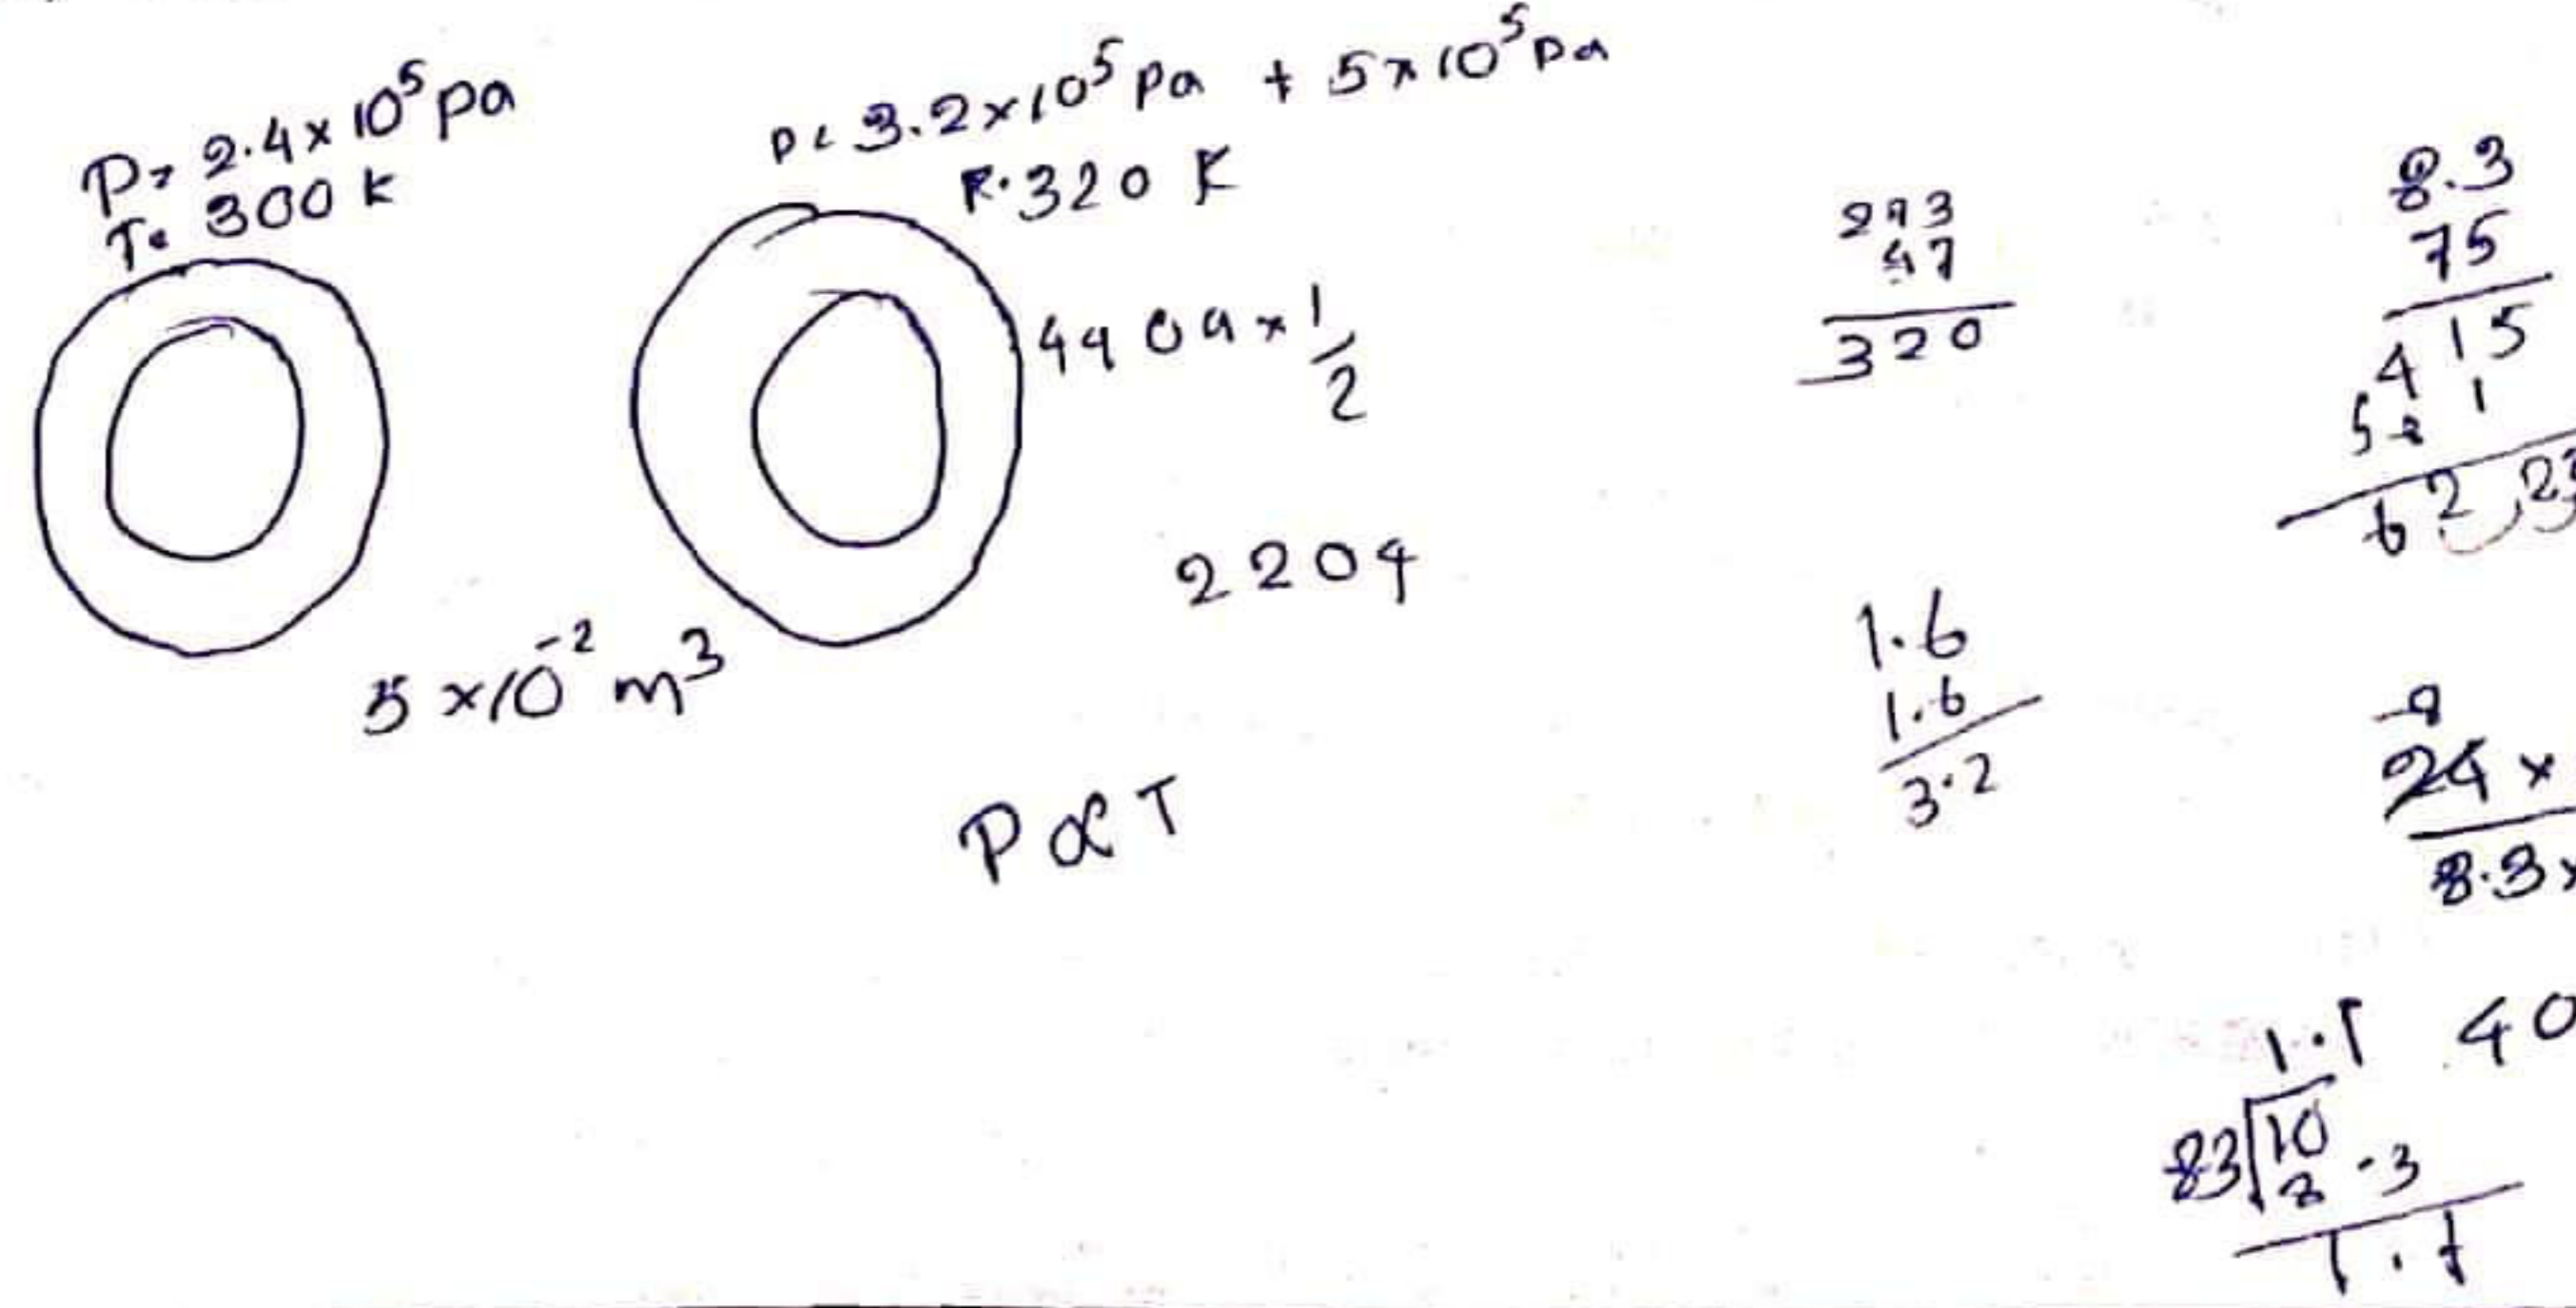 P= 2.4×10⁵ pa
T= 300 K
P= 3.2×10⁵ pa + 5×10⁵ pa
320 K
× 1/2
2204
5×10⁻² m³
P∝T
273
47
320
1.6
1.6
3.2
8.3
75
415
24×
8.3×
1.1
40
83
10
8.3
1.1